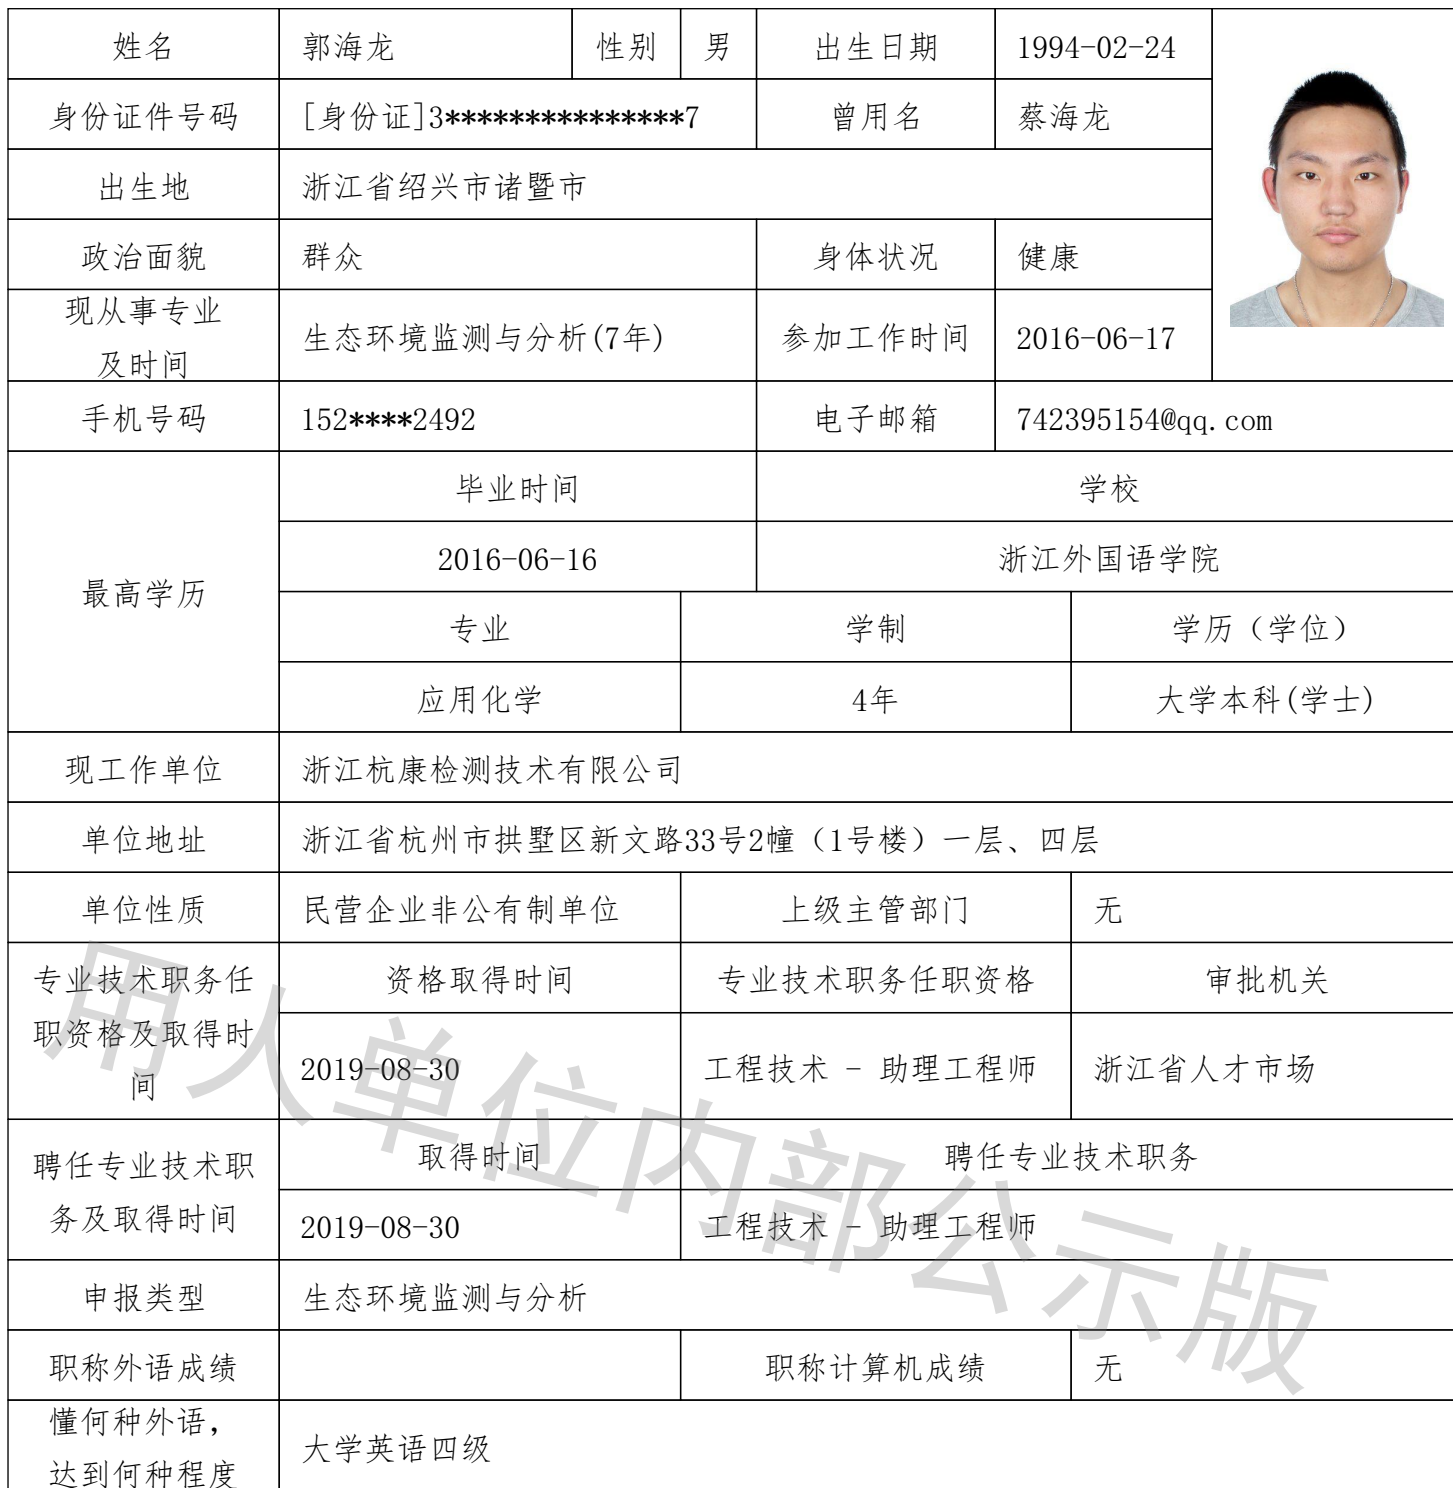 姓名 郭海龙 性别 男 出生日期 1994-02-24
身份证件号码 [身份证]3***************7 曾用名 蔡海龙
出生地 浙江省绍兴市诸暨市
政治面貌 群众 身体状况 健康
现从事专业
及时间
生态环境监测与分析(7年) 参加工作时间 2016-06-17
手机号码 152****2492 电子邮箱 742395154@qq.com
最高学历
毕业时间 学校
2016-06-16 浙江外国语学院
专业 学制 学历（学位）
应用化学 4年 大学本科(学士)
现工作单位 浙江杭康检测技术有限公司
单位地址 浙江省杭州市拱墅区新文路33号2幢（1号楼）一层、四层
单位性质 民营企业非公有制单位 上级主管部门 无
专业技术职务任
职资格及取得时
间
资格取得时间 专业技术职务任职资格 审批机关
2019-08-30 工程技术 - 助理工程师 浙江省人才市场
聘任专业技术职
务及取得时间
取得时间 聘任专业技术职务
2019-08-30 工程技术 - 助理工程师
申报类型 生态环境监测与分析
职称外语成绩 职称计算机成绩 无
懂何种外语，
达到何种程度
大学英语四级
用人单位内部公示版